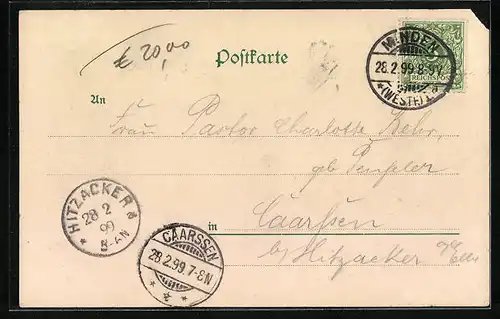 € 20,00
Postkarte
MINDEN
28.2.99.8-9V
*(WESTF)1.a
REICHSPOST
An
Frau Pastor Charlotte
geb
in Caarssen
b/ Hitzacker a/Elbe
HITZACKER
28 2
99
8-9N
CAARSSEN
28.2.99.7-8N
* * *